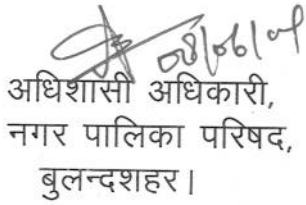 08/06/09
अधिशासी अधिकारी,
नगर पालिका परिषद,
बुलन्दशहर।